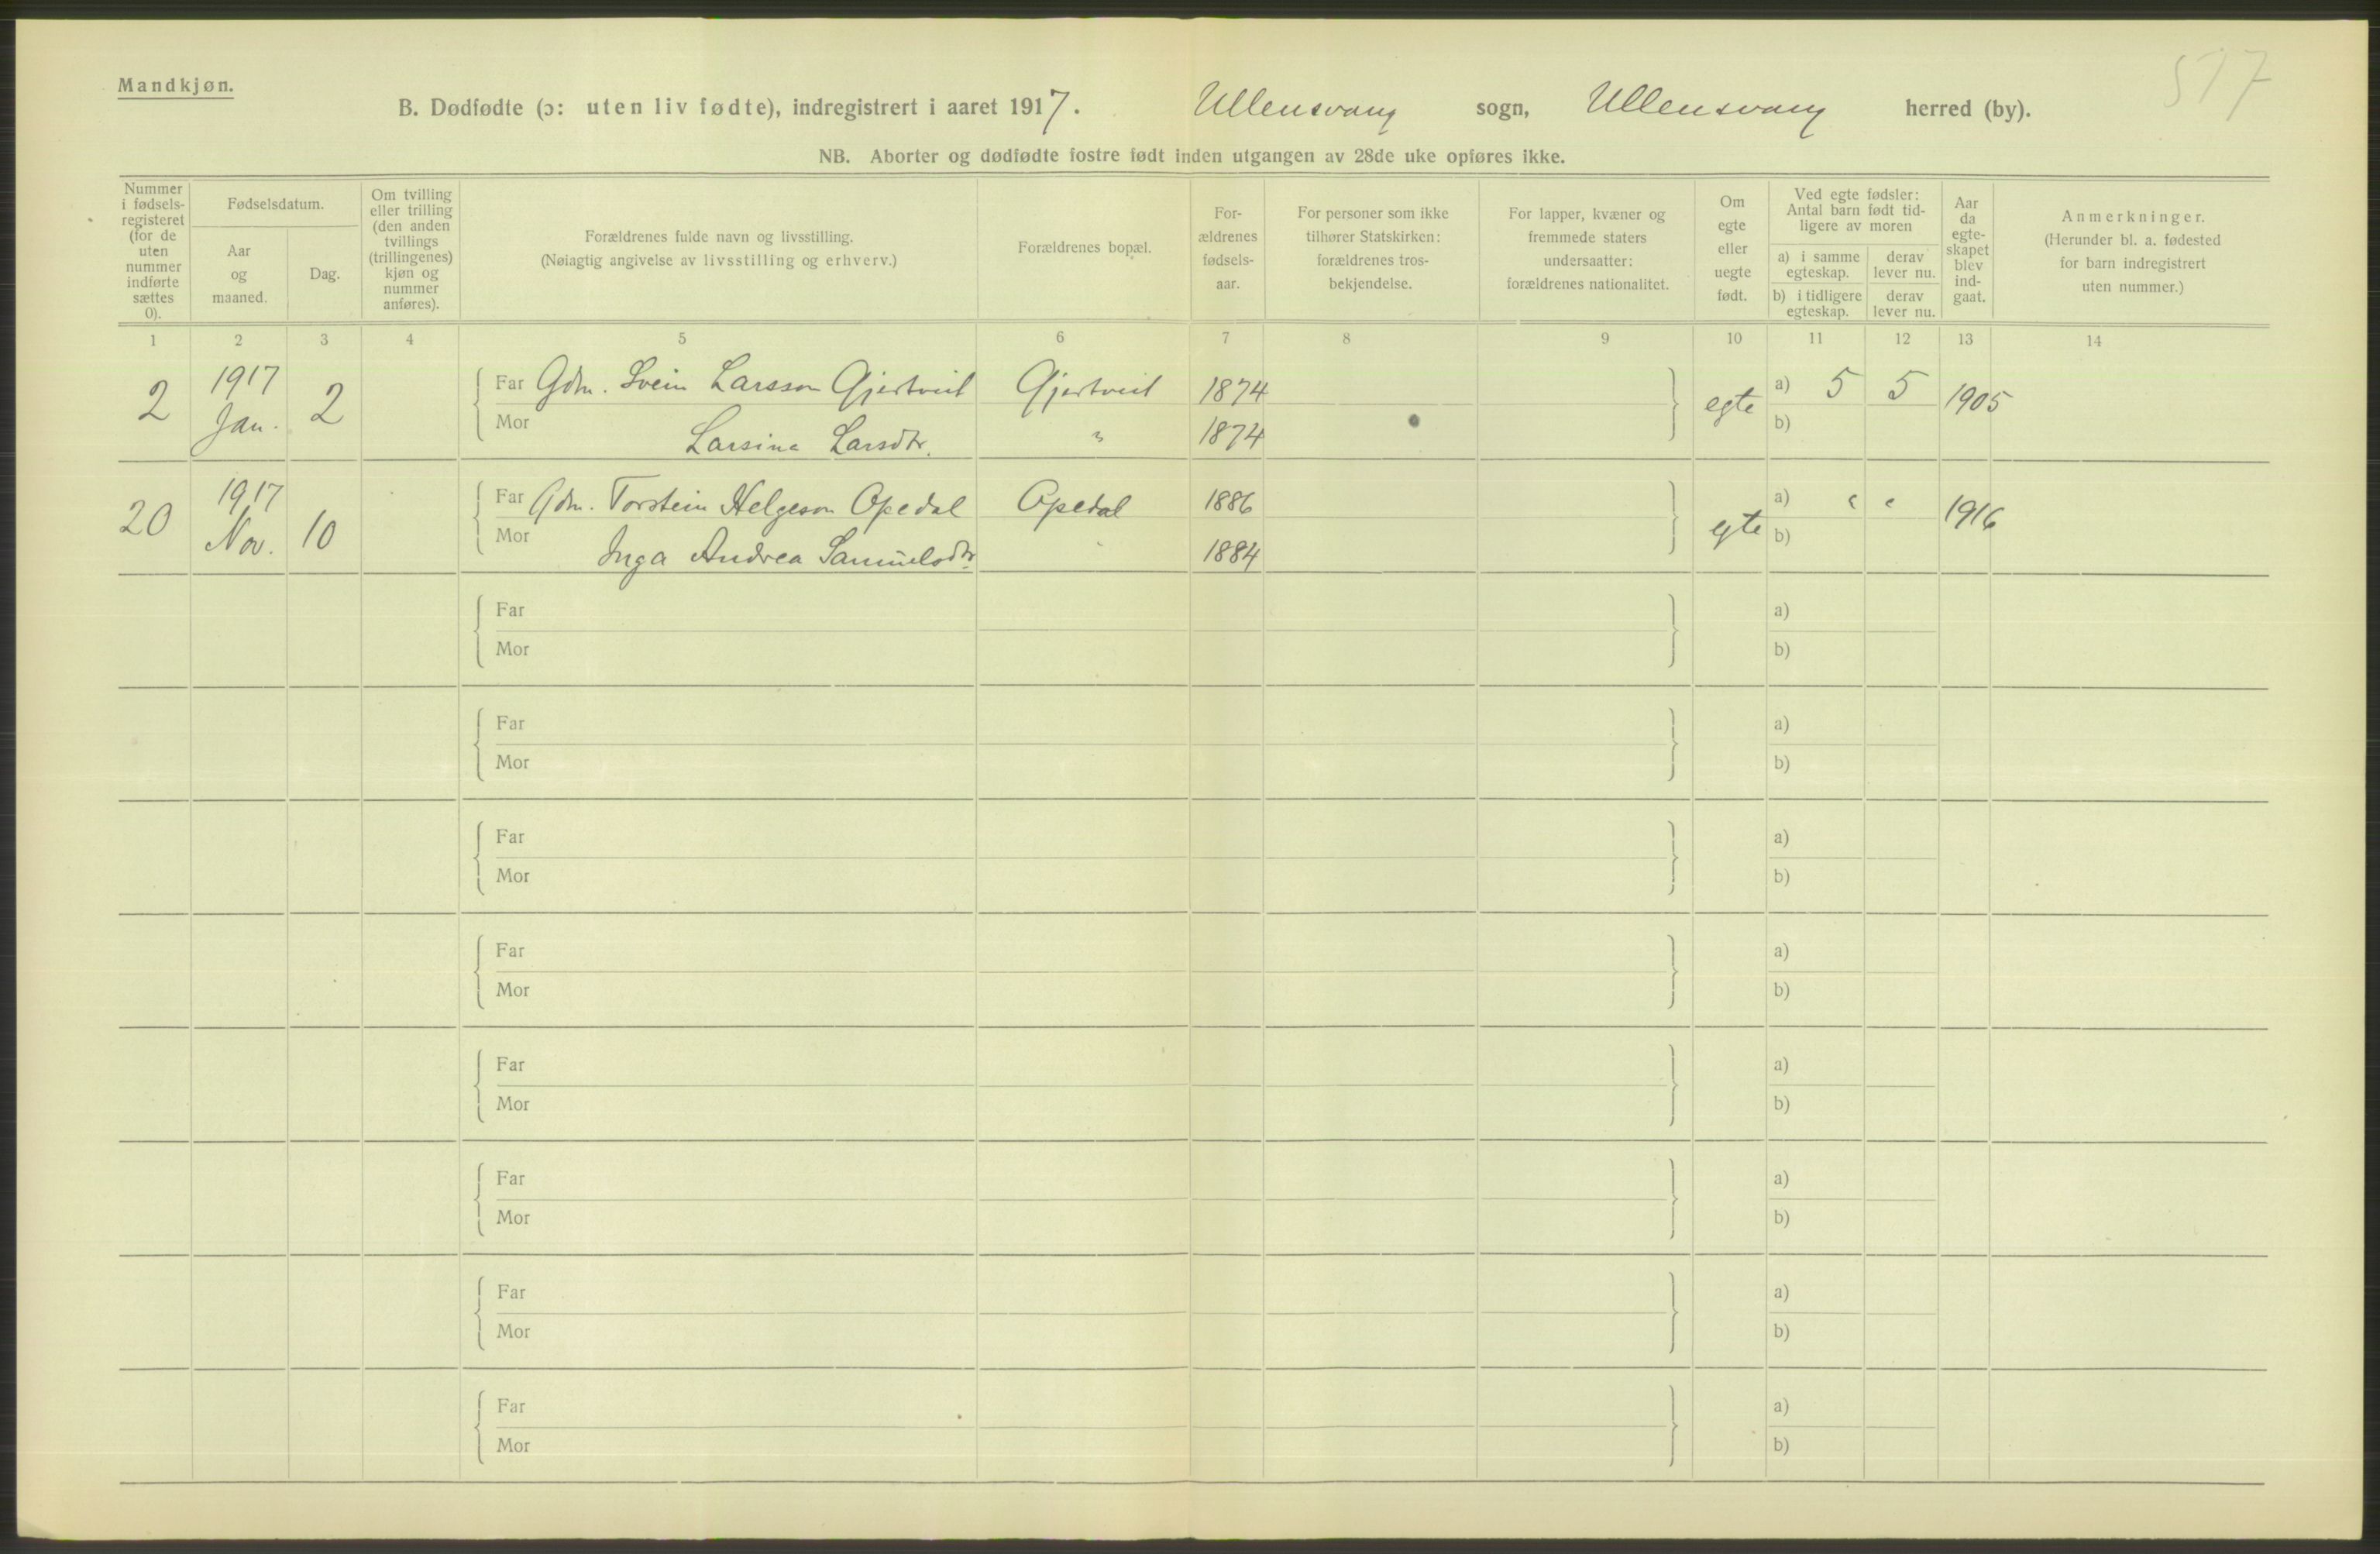 Mandkjøn.
517
B. Dødfødte (ɔ: uten liv fødte), indregistrert i aaret 1917. Ullensvang sogn, Ullensvang herred (by).
NB. Aborter og dødfødte fostre født inden utgangen av 28de uke opføres ikke.
Nummer i fødsels-registeret (for de uten nummer indførte sættes 0).
Fødselsdatum.
Aar og maaned.
Dag.
Om tvilling eller trilling (den anden tvillings (trillingenes) kjøn og nummer anføres).
Forældrenes fulde navn og livsstilling.
(Nøiagtig angivelse av livsstilling og erhverv.)
Forældrenes bopæl.
For-ældrenes fødsels-aar.
For personer som ikke tilhører Statskirken: forældrenes tros-bekjendelse.
For lapper, kvæner og fremmede staters undersaatter: forældrenes nationalitet.
Om egte eller uegte født.
Ved egte fødsler: Antal barn født tid-ligere av moren
a) i samme egteskap.
derav lever nu.
b) i tidligere egteskap.
derav lever nu.
Aar da egte-skapet blev ind-gaat.
Anmerkninger.
(Herunder bl. a. fødested for barn indregistrert uten nummer.)
1 2 3 4 5 6 7 8 9 10 11 12 13 14
2 1917 Jan. 2
Far Gdm. Svein Larsson Gjertveit Gjertveit 1874 egte a) 5 5 1905
Mor Larsina Larsdtr. " 1874 b)
20 1917 Nov. 10
Far Gdm. Torstein Helgeson Opedal Opedal 1886 egte a) " " 1916
Mor Inga Andrea Samuelsdtr. " 1884 b)
Far a)
Mor b)
Far a)
Mor b)
Far a)
Mor b)
Far a)
Mor b)
Far a)
Mor b)
Far a)
Mor b)
Far a)
Mor b)
Far a)
Mor b)